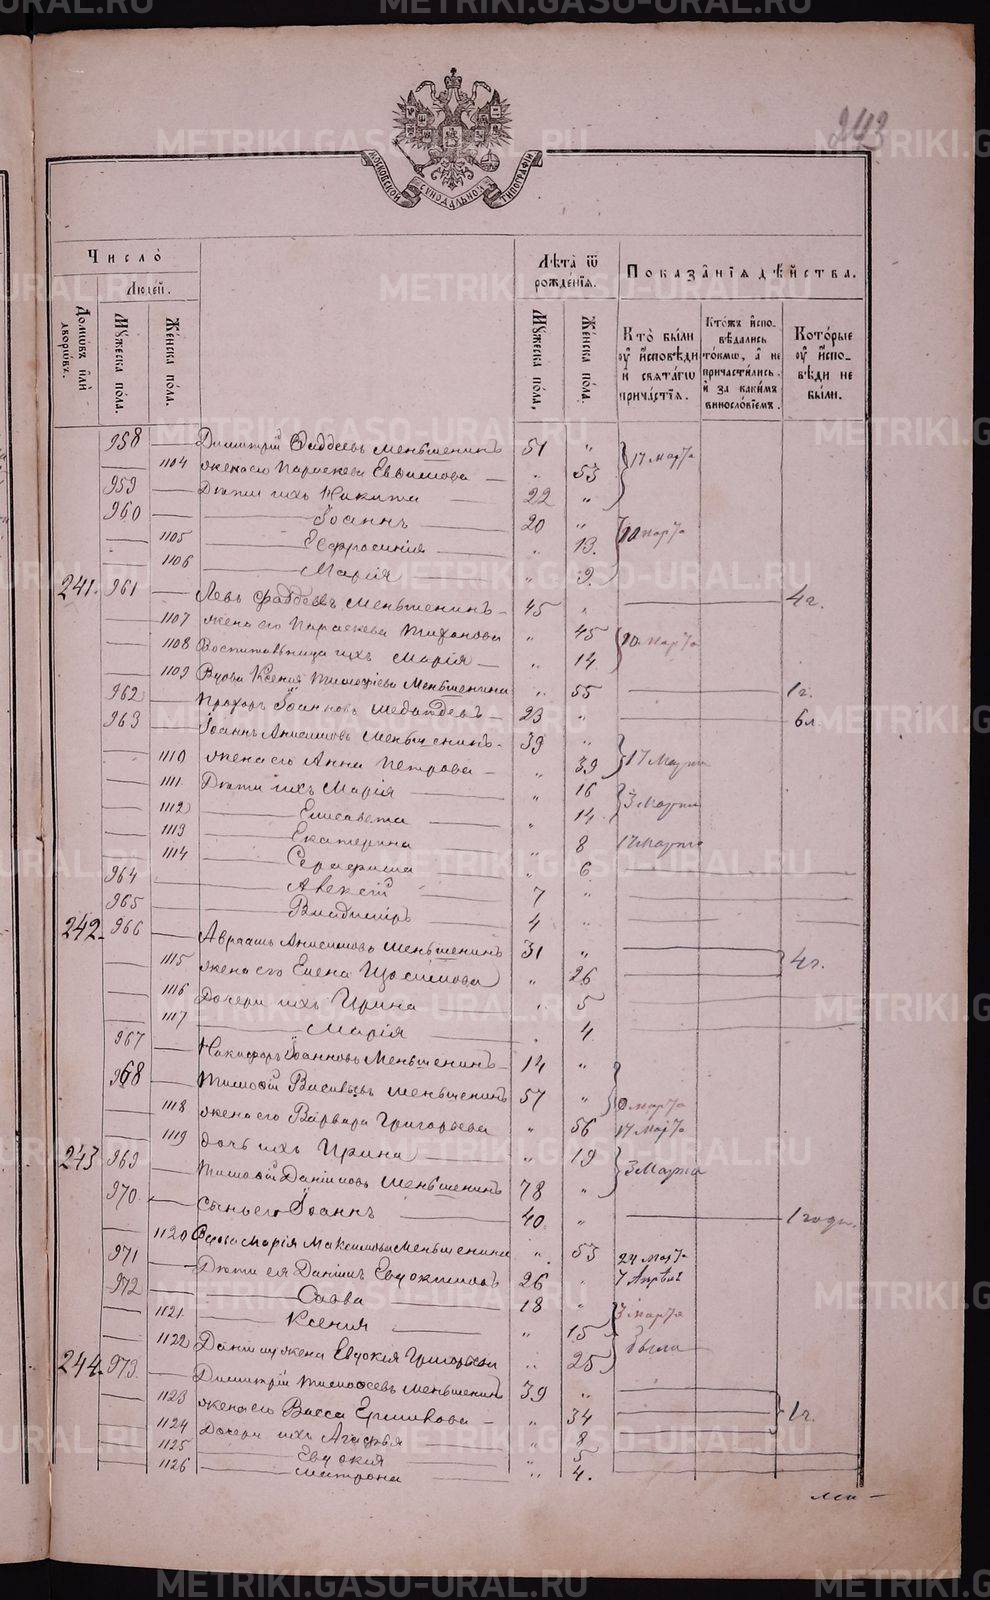 243
МОСКОВСКОЙ СѴНОДАЛЬНОЙ ТИПОГРАФІИ
Число̀
Людей.
Домѡвъ и҆лѝ дворѡвъ.
Мꙋжеска по́ла.
Же́нска по́ла.
Лѣта̀ ѿ рожде́нїѧ.
Мꙋжеска по́ла,
Же́нска по́ла.
Показа́нїѧ дѣ́йства.
Кто̀ бы́ли ᲂу҆ и҆сповѣди и҆ свѧта́гѡ прича́стїѧ.
Кто́жъ и҆спо-вѣдались то́кмѡ, а҆ не причасти́лись. и҆ за каки́мъ винослові́емъ.
Кото́рые ᲂу҆ и҆спо-вѣди не бы́ли.
958 Димитрій Фаддеевъ Меньшенинъ 51 "
1104 жена его Параскева Евфимова " 53 17 марта
959 Дѣти ихъ Никита 22 "
960 Іоаннъ 20 "
1105 Евфросинія " 13. 10 марта
1106 Марія " 9.
241. 961 Левъ Фаддеевъ Меньшенинъ 45 " 4 г.
1107 жена его Параскева Тиханова " 45
1108 Воспитанница ихъ Марія " 14 10 марта
1109 Вдова Ксенія Тимофеева Меньшенина " 55 1 г.
962 Прохоръ Іоанновъ 23 " 6 л.
963 Іоаннъ Анисимовъ Меньшенинъ 39 "
1110 жена его Анна Петрова " 39 17 Марта
1111 Дѣти ихъ Марія " 16
1112 Елисавета " 14. 3 Марта
1113 Екатерина " 8 17 Марта
1114 Серафима " 6
964 Алексій 7 "
965 Владиміръ 4 "
242. 966 Авраамъ Анисимовъ Меньшенинъ 31 "
1115 жена его Елена Изосимова " 26 4 г.
1116 Дочери ихъ Ирина " 5
1117 Марія " 4
967 Никифоръ Іоанновъ Меньшенинъ 14 "
968 Тимофій Васильевъ Меньшенинъ 57 " марта
1118 жена его Варвара Григорьева " 56 17 Марта
1119 дочь ихъ Ирина " 19
243 969 Тимофій Даніиловъ Меньшенинъ 78 " 3 Марта
970 Сынъ его Іоаннъ 40 " 1 годъ.
1120 Вдова Марія Максимова Меньшенина " 53 24 марта
971 Дѣти ея Даніилъ Евдокимовъ 26 " 7 Апрѣля
972 Савва 18 "
1121 Ксенія " 15 3 марта
1122 Даніила жена Евдокія Григорьева " 25 были
244. 973 Димитрій Тимофеевъ Меньшенинъ 39 "
1123 жена его Васса Ермилова " 34 1 г.
1124 Дочери ихъ Агафья " 8
1125 Евдокія " 5
1126 Матрона " 4.
METRIKI.GASO-URAL.RU